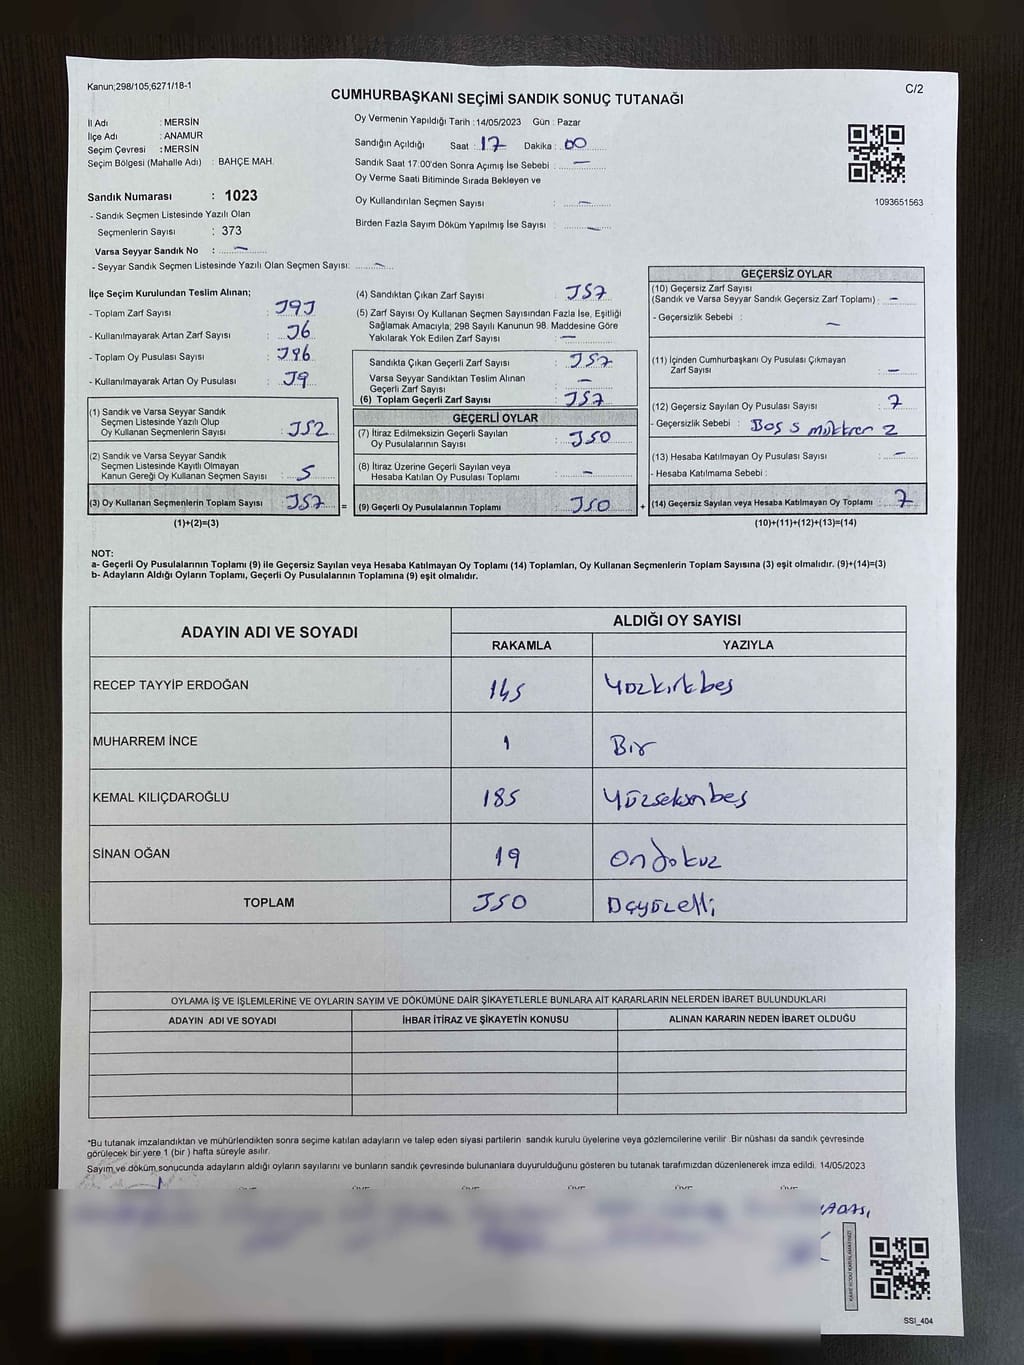 Kanun;298/105;6271/18-1
C/2
CUMHURBAŞKANI SEÇİMİ SANDIK SONUÇ TUTANAĞI
İl Adı : MERSİN
İlçe Adı : ANAMUR
Seçim Çevresi : MERSİN
Seçim Bölgesi (Mahalle Adı) : BAHÇE MAH.
Sandık Numarası : 1023
- Sandık Seçmen Listesinde Yazılı Olan
Seçmenlerin Sayısı : 373
Varsa Seyyar Sandık No : —
- Seyyar Sandık Seçmen Listesinde Yazılı Olan Seçmen Sayısı: —
Oy Vermenin Yapıldığı Tarih : 14/05/2023 Gün : Pazar
Sandığın Açıldığı Saat : 17 Dakika : 00
Sandık Saat 17:00'den Sonra Açımış İse Sebebi : —
Oy Verme Saati Bitiminde Sırada Bekleyen ve
Oy Kullandırılan Seçmen Sayısı : —
Birden Fazla Sayım Döküm Yapılmış İse Sayısı : —
1093651563
İlçe Seçim Kurulundan Teslim Alınan;
- Toplam Zarf Sayısı : 393
- Kullanılmayarak Artan Zarf Sayısı : 36
- Toplam Oy Pusulası Sayısı : 396
- Kullanılmayarak Artan Oy Pusulası : 39
(1) Sandık ve Varsa Seyyar Sandık
Seçmen Listesinde Yazılı Olup
Oy Kullanan Seçmenlerin Sayısı : 352
(2) Sandık ve Varsa Seyyar Sandık
Seçmen Listesinde Kayıtlı Olmayan
Kanun Gereği Oy Kullanan Seçmen Sayısı : 5
(3) Oy Kullanan Seçmenlerin Toplam Sayısı : 357 =
(1)+(2)=(3)
(4) Sandıktan Çıkan Zarf Sayısı : 357
(5) Zarf Sayısı Oy Kullanan Seçmen Sayısından Fazla İse, Eşitliği
Sağlamak Amacıyla; 298 Sayılı Kanunun 98. Maddesine Göre
Yakılarak Yok Edilen Zarf Sayısı : —
Sandıkta Çıkan Geçerli Zarf Sayısı : 357
Varsa Seyyar Sandıktan Teslim Alınan
Geçerli Zarf Sayısı : —
(6) Toplam Geçerli Zarf Sayısı : 357
GEÇERLİ OYLAR
(7) İtiraz Edilmeksizin Geçerli Sayılan
Oy Pusulalarının Sayısı : 350
(8) İtiraz Üzerine Geçerli Sayılan veya
Hesaba Katılan Oy Pusulası Toplamı : —
(9) Geçerli Oy Pusulalarının Toplamı : 350 +
GEÇERSİZ OYLAR
(10) Geçersiz Zarf Sayısı
(Sandık ve Varsa Seyyar Sandık Geçersiz Zarf Toplamı) : —
- Geçersizlik Sebebi : —
(11) İçinden Cumhurbaşkanı Oy Pusulası Çıkmayan
Zarf Sayısı : —
(12) Geçersiz Sayılan Oy Pusulası Sayısı : 7
- Geçersizlik Sebebi : Boş 5 mükkrer 2
(13) Hesaba Katılmayan Oy Pusulası Sayısı : —
- Hesaba Katılmama Sebebi :
(14) Geçersiz Sayılan veya Hesaba Katılmayan Oy Toplamı : 7
(10)+(11)+(12)+(13)=(14)
NOT:
a- Geçerli Oy Pusulalarının Toplamı (9) ile Geçersiz Sayılan veya Hesaba Katılmayan Oy Toplamı (14) Toplamları, Oy Kullanan Seçmenlerin Toplam Sayısına (3) eşit olmalıdır. (9)+(14)=(3)
b- Adayların Aldığı Oyların Toplamı, Geçerli Oy Pusulalarının Toplamına (9) eşit olmalıdır.
ADAYIN ADI VE SOYADI
ALDIĞI OY SAYISI
RAKAMLA YAZIYLA
RECEP TAYYİP ERDOĞAN 145 Yüzkırkbeş
MUHARREM İNCE 1 Bir
KEMAL KILIÇDAROĞLU 185 Yüzseksenbeş
SİNAN OĞAN 19 Ondokuz
TOPLAM 350 Üçyüzelli
OYLAMA İŞ VE İŞLEMLERİNE VE OYLARIN SAYIM VE DÖKÜMÜNE DAİR ŞİKAYETLERLE BUNLARA AİT KARARLARIN NELERDEN İBARET BULUNDUKLARI
ADAYIN ADI VE SOYADI İHBAR İTİRAZ VE ŞİKAYETİN KONUSU ALINAN KARARIN NEDEN İBARET OLDUĞU
*Bu tutanak imzalandıktan ve mühürlendikten sonra seçime katılan adayların ve talep eden siyasi partilerin sandık kurulu üyelerine veya gözlemcilerine verilir. Bir nüshası da sandık çevresinde
görülecek bir yere 1 (bir ) hafta süreyle asılır.
Sayım ve döküm sonucunda adayların aldığı oyların sayılarını ve bunların sandık çevresinde bulunanlara duyurulduğunu gösteren bu tutanak tarafımızdan düzenlenerek imza edildi. 14/05/2023
SSI_404